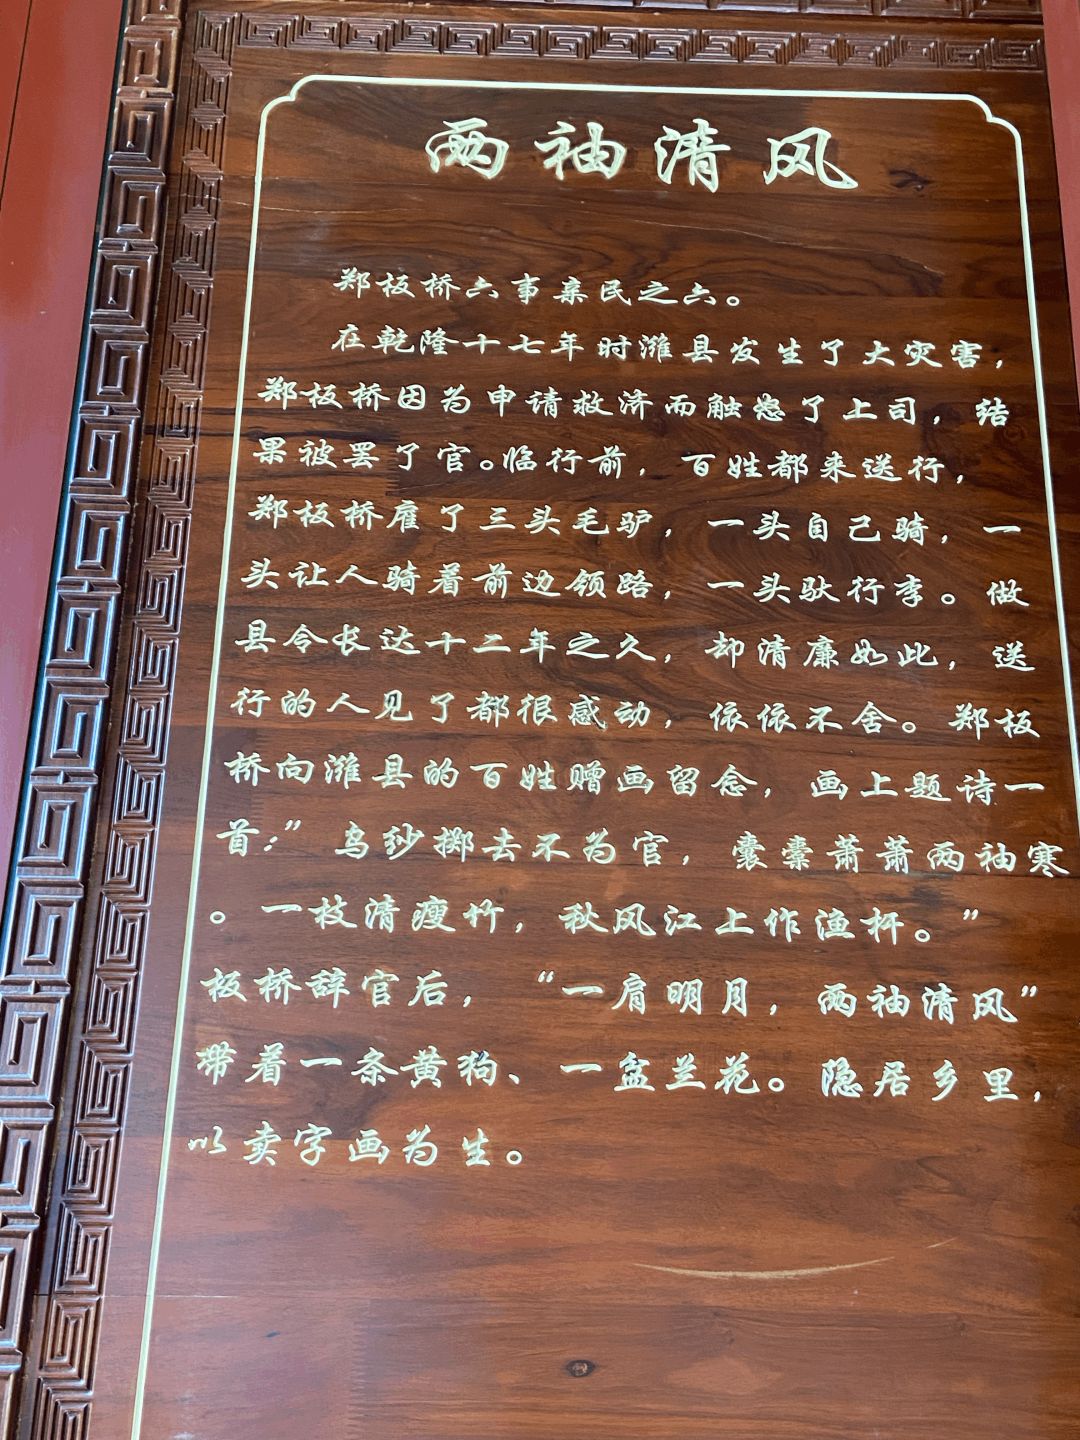 两袖清风
郑板桥六事亲民之六。
在乾隆十七年时潍县发生了大灾害，
郑板桥因为申请救济而触怒了上司，结
果被罢了官。临行前，百姓都来送行，
郑板桥雇了三头毛驴，一头自己骑，一
头让人骑着前边领路，一头驮行李。做
县令长达十二年之久，却清廉如此，送
行的人见了都很感动，依依不舍。郑板
桥向潍县的百姓赠画留念，画上题诗一
首：”乌纱掷去不为官，囊橐萧萧两袖寒
。一枝清瘦竹，秋风江上作渔杆。”
板桥辞官后，“一肩明月，两袖清风”
带着一条黄狗、一盆兰花。隐居乡里，
以卖字画为生。